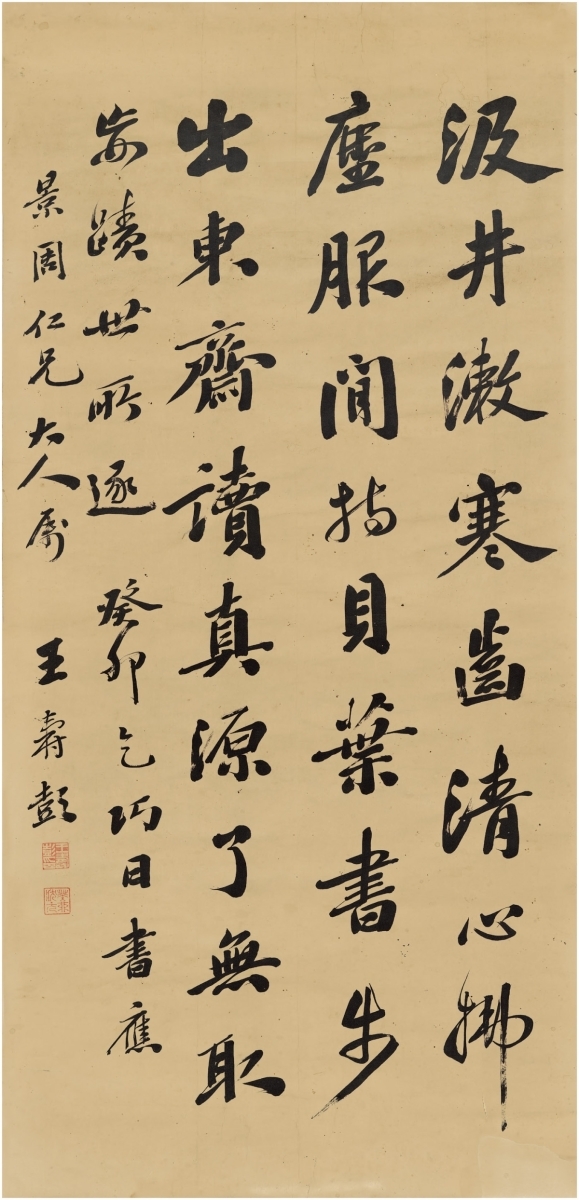 汲井漱寒齒清心拂
塵服閒持貝葉書步
出東齋讀真源了無取
妄蹟世所逐 癸卯乞巧日書應
景周仁兄大人屬 王壽彭